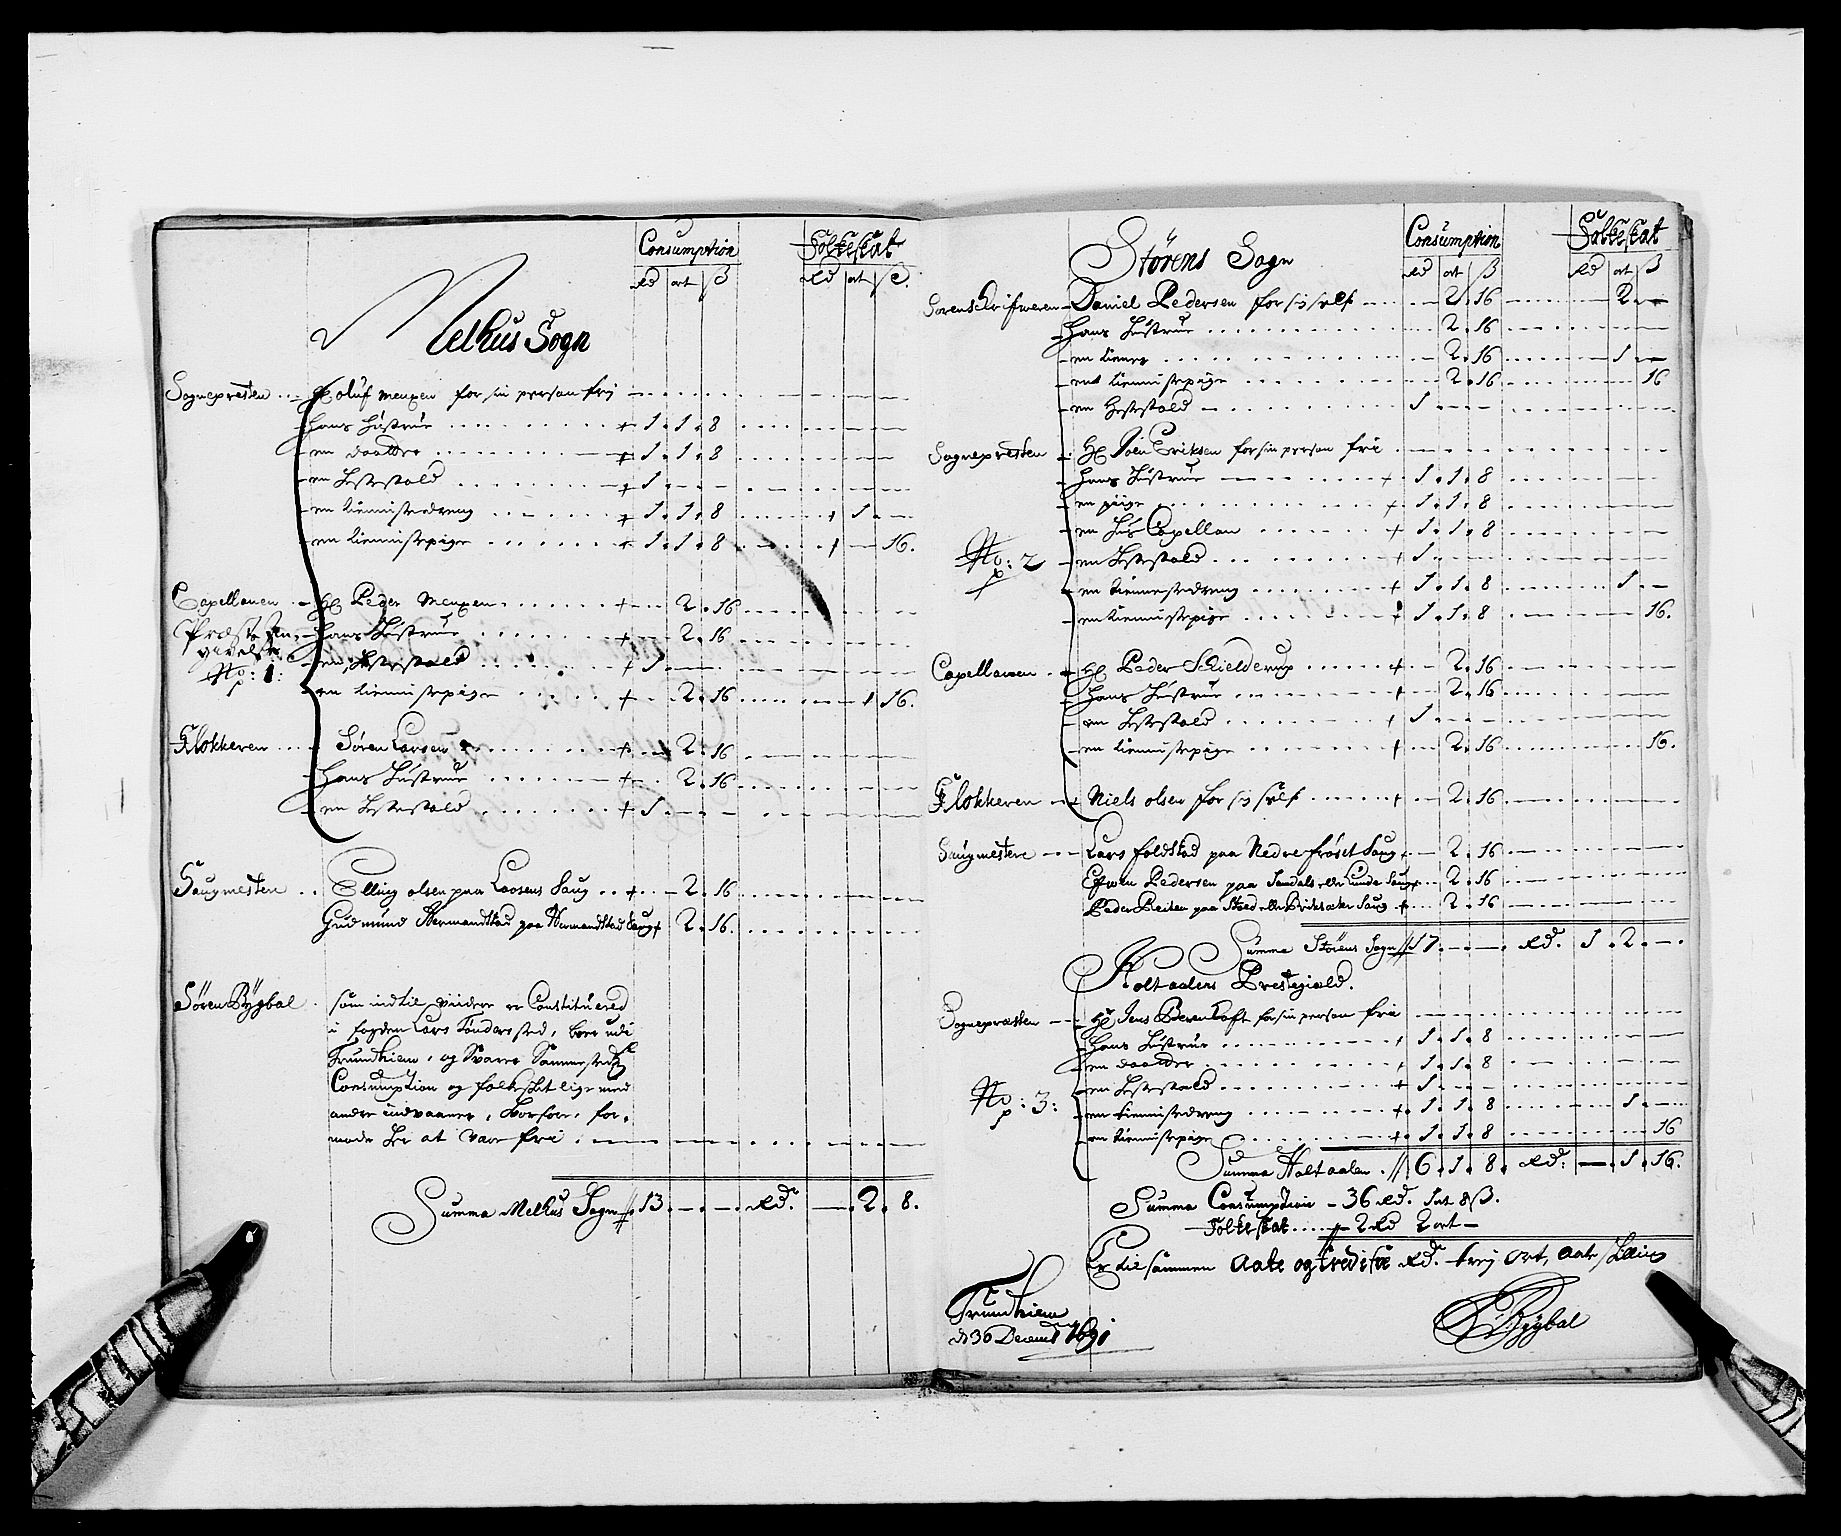 Consumption Folkeskat
Rd ort ß Rd ort ß.
Melhus Sogn
Sognepresten .. H: Oluf Mentzen for sin person fri
Hans Hustrue + 1. 1. 8
en daatter + 1. 1. 8
en Hestestald + 1. - -
en tiennistedreng + 1. 1. 8 + 1. -
en tiennistepige + 1. 1. 8 + - 16.
Capellanen H: Peder Mentzen + 2. 16
Hans Hustrue + 2. 16
en Hestestald + 1.
No: 1:
en tiennistepige + 2. 16 + 16.
Klokkeren Søren Larsen + 2. 16
Hans Hustrue + 2. 16
en Hestestald + 1.
Saugmestere .. Elling olsen paa Loosens Saug + 2. 16
Gudmund Hermandstad paa Hermandstad Saug + 2. 16.
Søren Bygbal. som indtil viidere er Constituered
i fogden Lars Tønders sted, boer udi
Trundhiem, og Svarer Sammesteds
Consumption og folkeskat lige med
andre indvaaner, hvorfore, for-
mode her at være fri
Summa Melhus Sogn // 13. - - Rd. - 2. 8.
Consumption Folkeskat
Rd ort ß Rd ort ß
Störens Sogn
Sorenskrifveren Daniel Pedersen for sig self 2. 16 2. -
Hans Hustrue 2. 16
en tiener 2. 16 1. -
en tiennistepige 2. 16 16
en Hestestald 1. - -
Sognepresten H: Joen Eriksen for sin person frie
Hans Hustrue + 1. 1. 8
en pige + 1. 1. 8
en Hus Capellan + 1. 1. 8
No: 2
en Hestestald + 1.
en tiennestedreng + 1. 1. 8 1. -
en tiennistepige + 1. 1. 8 16.
Capellanen H: Peder Schielderup + 2. 16
Hans Hustrue + 2. 16
en Hestestald + 1.
en tiennistepige + 2. 16 16.
Klokkeren Niels olsen for sig self + 2. 16
Saugmestere Lars foldstad paa Nedre frøset Saug + 2. 16
Efwen Pedersen paa Sandals eller Lunde Saug + 2. 16
Peder Reiten paa Stoed eller Saug + 2. 16
Summa Störens Sogn // 17. - - Rd. 1. 2. -.
Holtaalens Prestegiæld.
Sognepresten H: Jens for sin person frie
Hans Hustrue + 1. 1. 8
en daatter + 1. 1. 8
en Hestestald + 1. - -
No: 3:
en tiennistedreng + 1. 1. 8 1. -
en tiennistepige + 1. 1. 8 16
Summa Holtaalen // 6. 1. 8. Rd: - 1. 16.
Summa Consumption - 36 Rd. 1 ort 8 ß.
Folkeskat - 2 Rd 2 ort -
Er til sammen Aate og tredifve Rd. trej ort, aate skilling
Trundhiem
d 30 Decemb 1691
S Bygbal